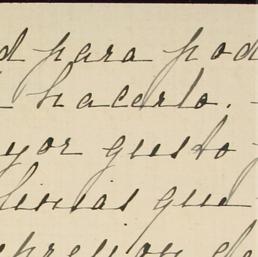 d para pod
hacerlo.
yor gusto
licias que
de